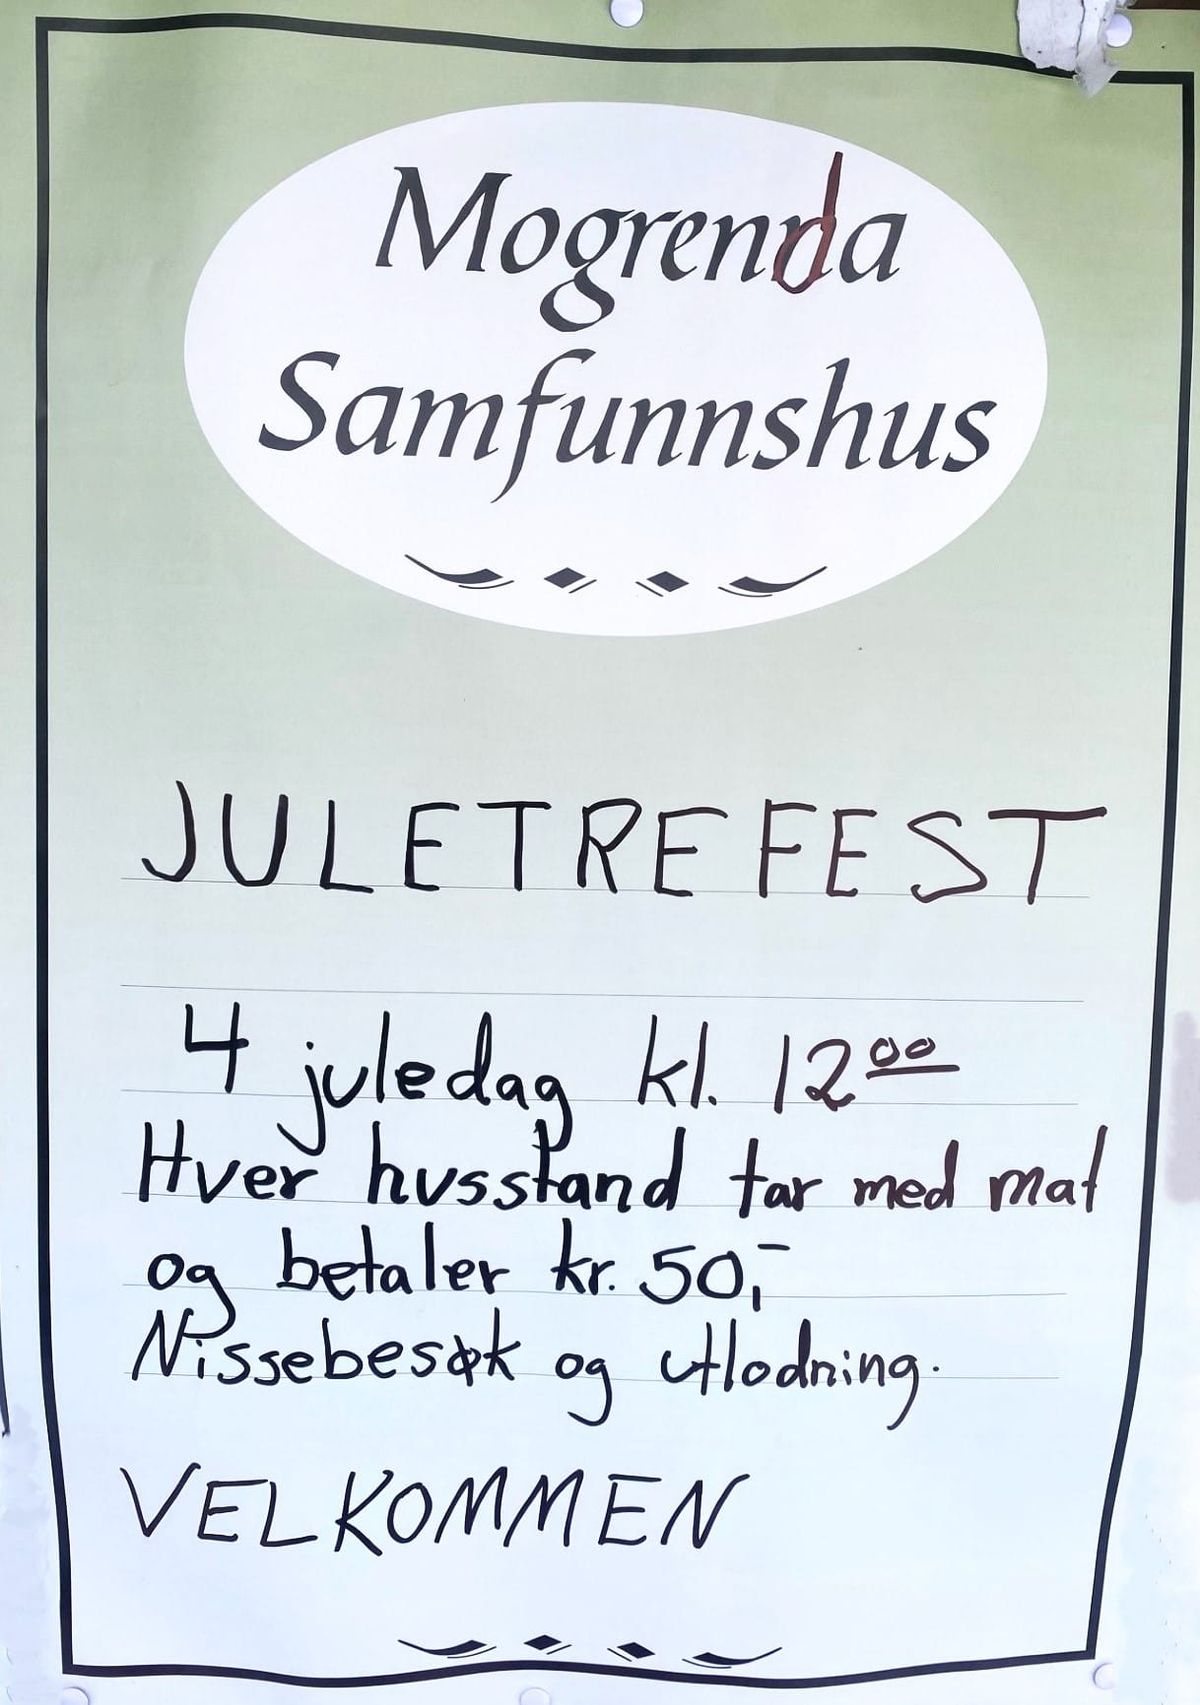 Mogrenda
Samfunnshus
JULETREFEST
4 juledag kl. 12⁰⁰
Hver husstand tar med mat
og betaler kr. 50,-
Nissebesøk og utlodning.
VELKOMMEN